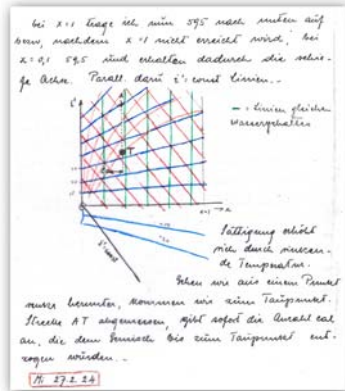 bei x=1 trage ich nun 595 nach unten auf
bezw, nachdem x=1 nicht erreicht wird, bei
x=0,1 59,5 und erhalten dadurch die schie-
fe Achse. Parall. dazu i'=const Linien. -
i'
- = Linien gleichen
Wassergehaltes
T
x=1 → x
i'=const
Sättigung erhöht
sich durch sinken-
de Temperatur.
Gehen wir aus einem Punkt
herunter, kommen wir zum Taupunkt.
Strecke AT abgemessen, gibt sofort die Anzahl cal
an, die dem Gemisch bis zum Taupunkt ent-
zogen würden. -
Mi 27.2.24